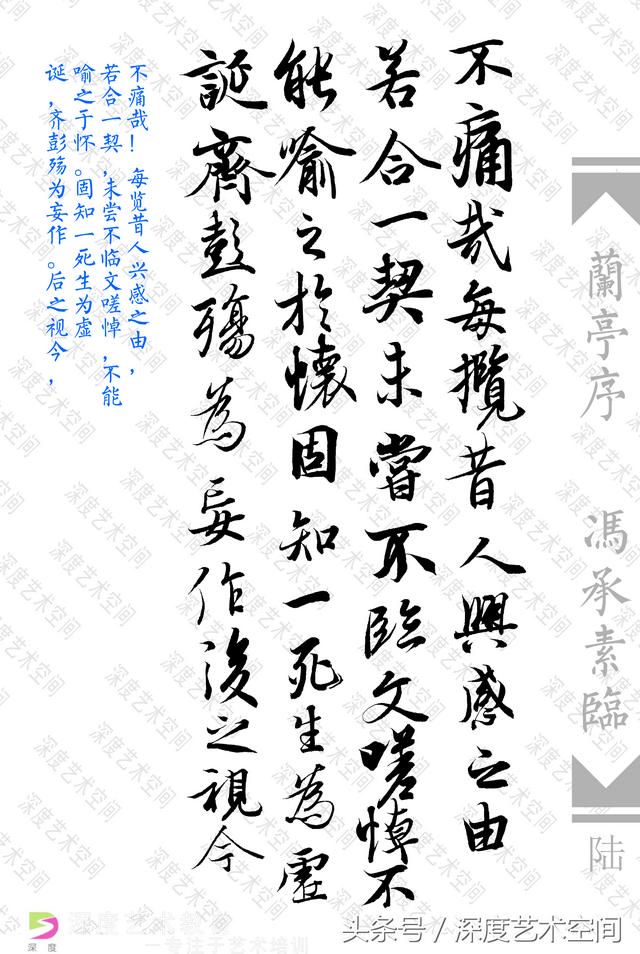 不痛哉每攬昔人興感之由
若合一契未嘗不臨文嗟悼不
能喻之於懷固知一死生為虛
誕齊彭殤為妄作後之視今
不痛哉！每览昔人兴感之由，
若合一契，未尝不临文嗟悼，不能
喻之于怀。固知一死生为虚
诞，齐彭殇为妄作。后之视今，
蘭亭序 馮承素臨
陆
深度
深度艺术教
一专注于艺术培训
头条号／深度艺术空间
深度艺术空间